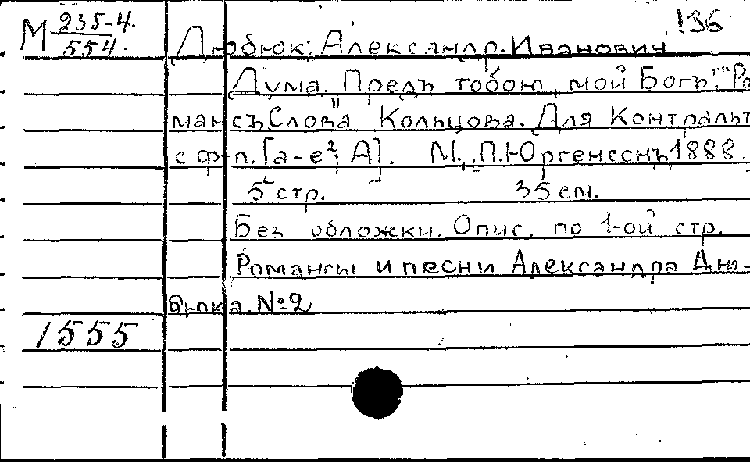 М 235-4. 136
554.
Дюбюк, Александр Иванович
Дума. Предъ тобою, мой Богъ". Ро
мансъ. Слова Кольцова. Для контральт
с ф-п. [a-e², A]. М., П. Юргенсонъ, 1888.
5 стр. 35 см.
Без обложки. Опис. по 1-ой стр.
Романсы и песни Александра Дю-
бюка. №2
1555